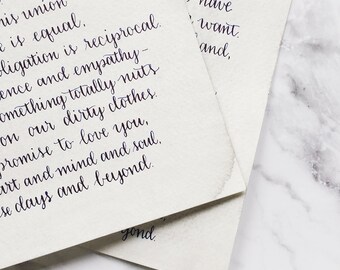 his union
is equal,
bligation is reciprocal.
ence and empathy—
something totally nuts
on our dirty clothes.
promise to love you,
art and mind and soul,
se days and beyond.
have
want.
and,
yond.